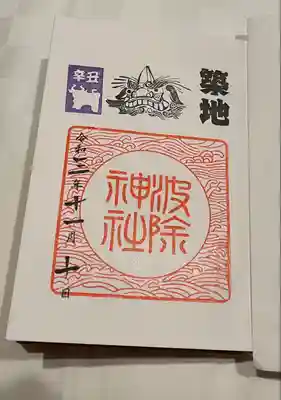 築地
辛丑
波除
神社
令和三年十一月十日